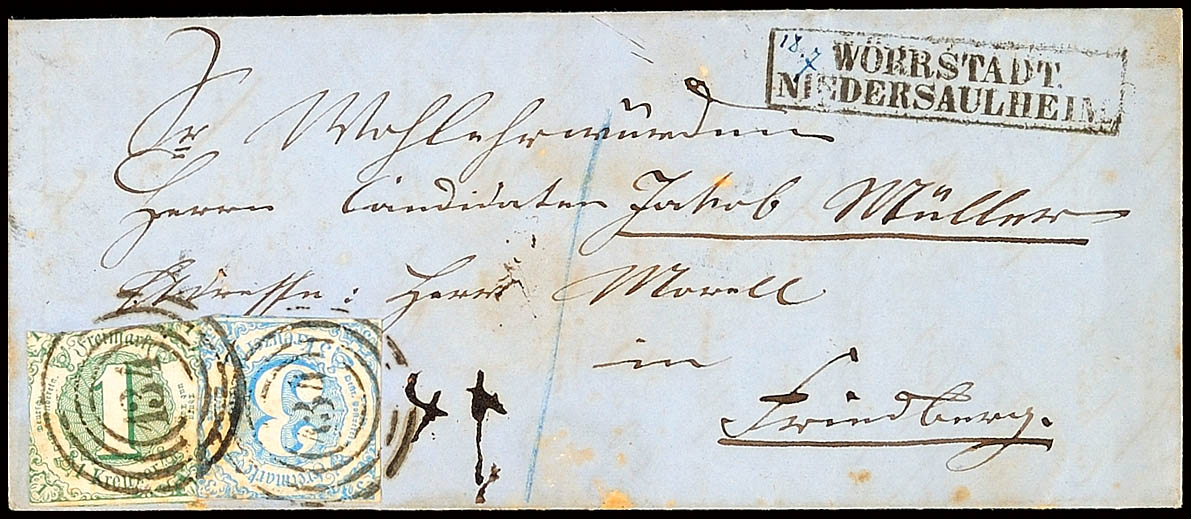 18/7
WÖRRSTADT.
NIEDERSAULHEIM
Sr Wohlehrwürden
Herrn Candidaten Jakob Müller
Adresse: Herrn Morell
in
Friedberg.
Freimarke
1
1 Kreuzer
134
3 Kreuzer
3
Freimarke
134